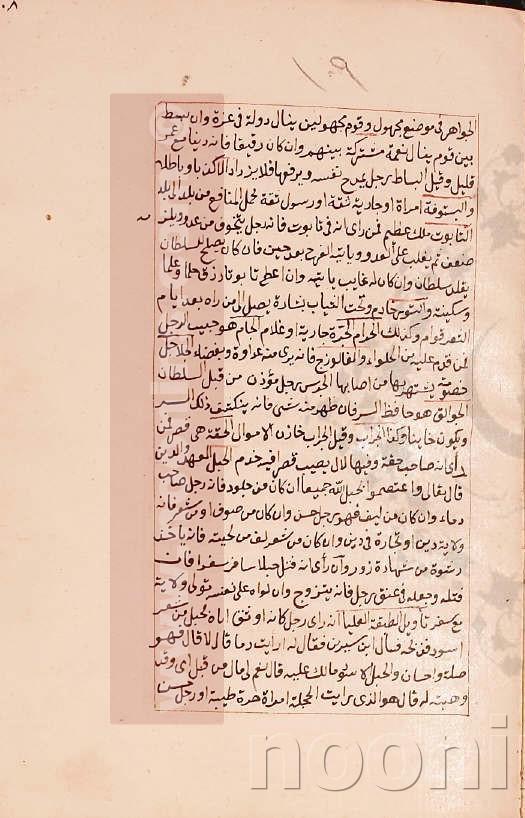 ٠٨
١٩
الجواهر فى موضع مجهول وقوم مجهولين ينال دولة فى غزة وان بسط
بين قوم ينال نعمة مشتركة بينهم وان كان رقيقا فانه دينا مع عمر
قليل وقيل البساط رجل يمدح نفسه ويرفعها فلا يزداد الا كذبا وباطله
والبستوقة امراة او جارية ثقة او رسول ثقة تحمل المنافع من بلد الى بلد
التابوت ملك عظيم فمن راى انه فى تابوت فانه رجل يتخوف من عدو ويلز
ضعف ثم يغلب على العدو وياتيه الفرح بعد حين فان كان يصلح للسلطان
يقلد سلطان وان كان له غايب ياتيه وان اعطى تابوتا رزق حلما وعلما
وسكينة والتنور خادم وتحت الثياب بشارة يصل الى من راه بعد ايام
قوام وكذلك الحزام الجرة جارية او غلام الجام هو حبيب الرجل
لمن قدم عليه من الحلواء والفالوزج فانه يرى منه عداوة وبغضاء
يشتهر بها من اصابها الجرس رجل مؤذن من قبل السلطان
الجوالق هو حافظ السر فان ظهر منه شى فانه ينكشف ذلك السر
ويكون خاينا وكذا الجراب وقيل الجراب خازن الاموال الحقة هى قصر لمن
رأى انه صاحب حقة وفيها لال يصيب قصر فيه خدم الحبل العهد والدين
قال تعالى واعتصموا بحبل الله جميعا ان كان من جلود فانه رجل صاحب
دماء وان كان من ليف فهو رجل خشن وان كان من صوف او من شعر فانه
ولاية دين او تجارة فى دين وان كان من شعر لف من لحيته فانه ياخذ
رشوة من شهادة زور وان رأى انه فتل حبلا سافر سفرا فان
فتله وجعله فى عنق رجل فانه يتزوج وان لواه على نفسه تولى ولاية
مع سفر تاويل الطبقة العليا انه راى رجل كانه اوثق اباه بحبل من شعر
اسود فسأل ابن سيرين فقال له ارايت دما قال لا قال فهو
صلة واحسان والحبل مالك عليه قال نعم لى مال من قبل ابى وقد
وهبته له قال هو الذى رايت المجلة امراة حرة طيبة او رجل حسن
nooni